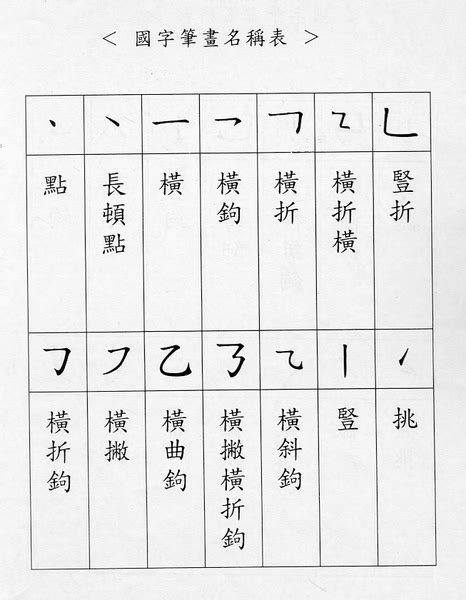 < 國字筆畫名稱表 >
丶 ㇔ 一 乛 ㇕ ㇅ ㇄
點
長頓點
橫
橫鉤
橫折
橫折橫
豎折
㇆ ㇇ 乙 ㇡ ㇈ 丨 ㇀
橫折鉤
橫撇
橫曲鉤
橫撇橫折鉤
橫斜鉤
豎
挑